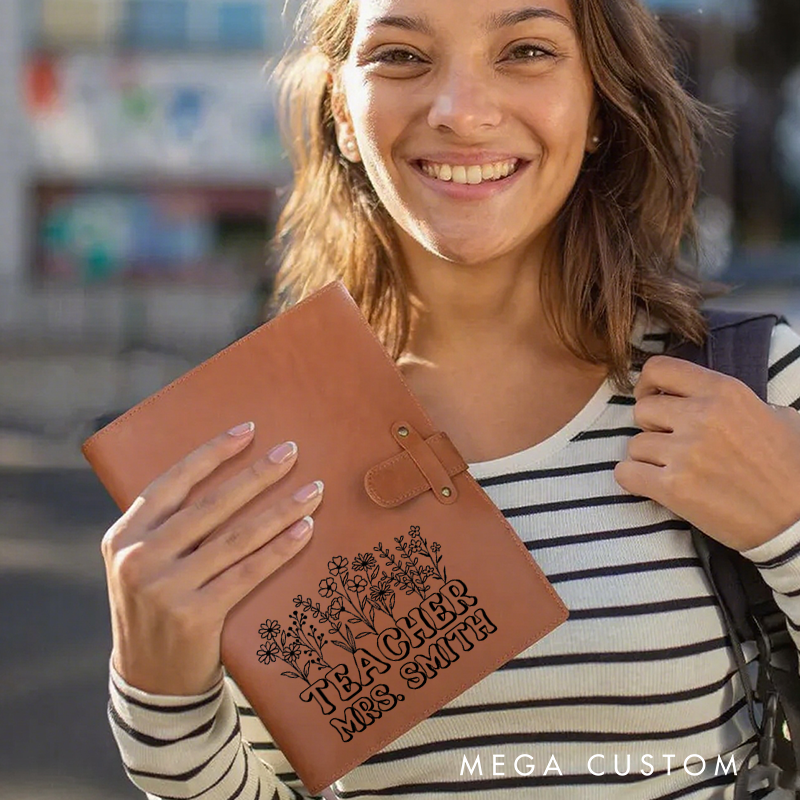 TEACHER
MRS. SMITH
MEGA CUSTOM